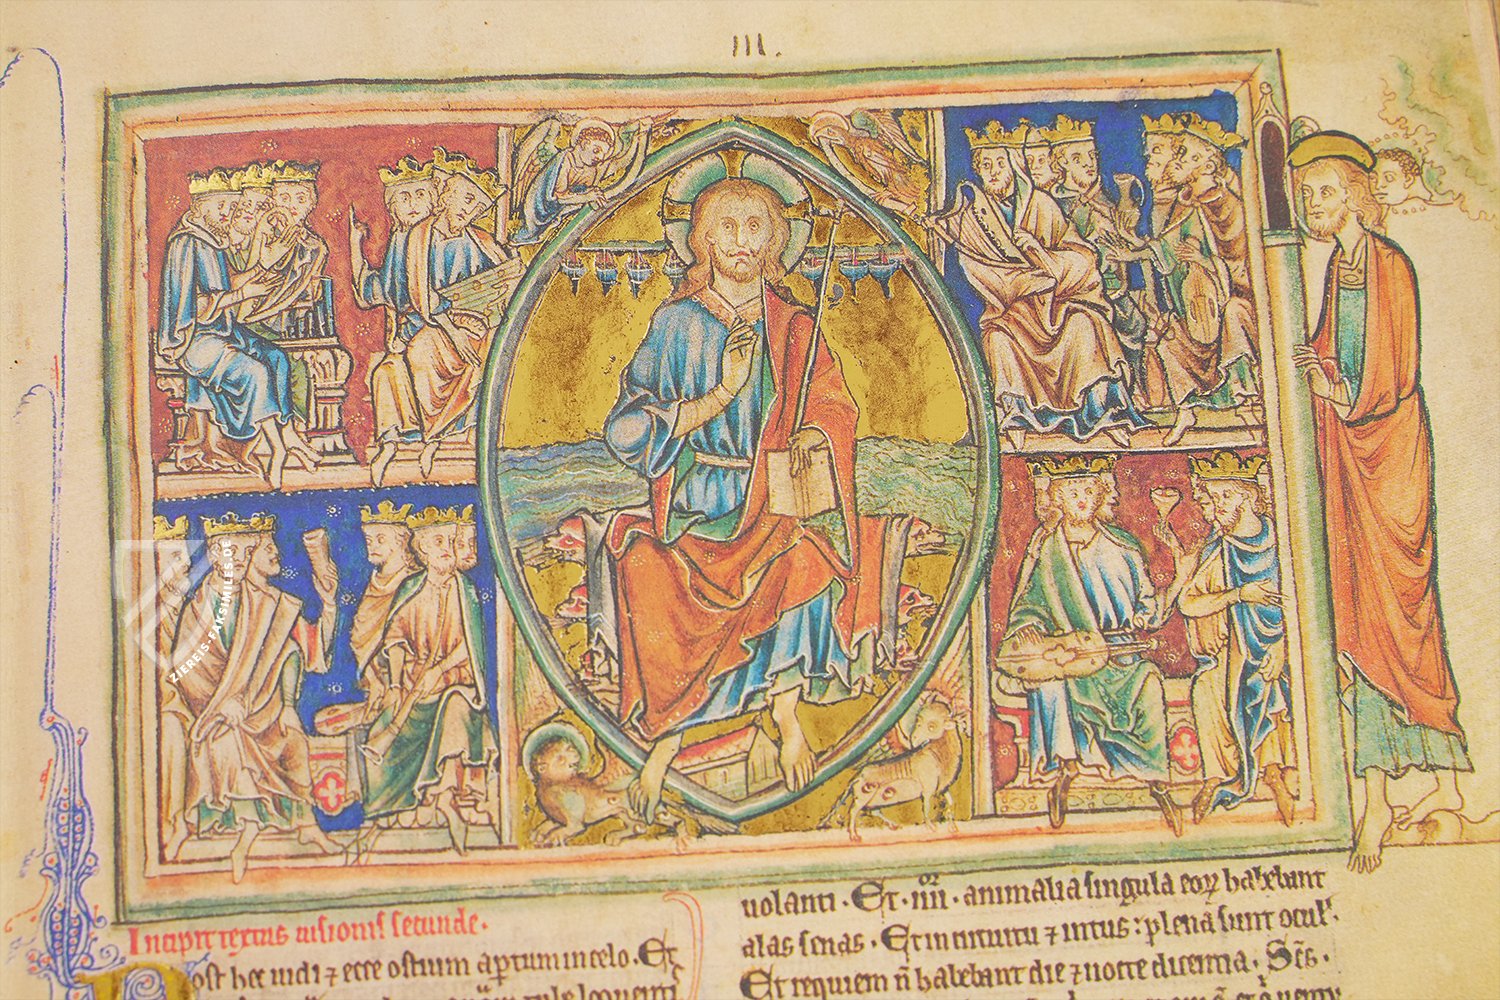 III.
ZIEREIS-FAKSIMILES.DE
Incipit textus uisionis secunde.
ost hec uidi ⁊ ecce ostium aptum in celo. Et
uolanti. Et. iiii. animalia singula eoꝝ habebant
alas senas. Et in circuitu ⁊ intus: plena sunt ocul
Et requiem n̄ habebant die ⁊ nocte dicentia. Scs.